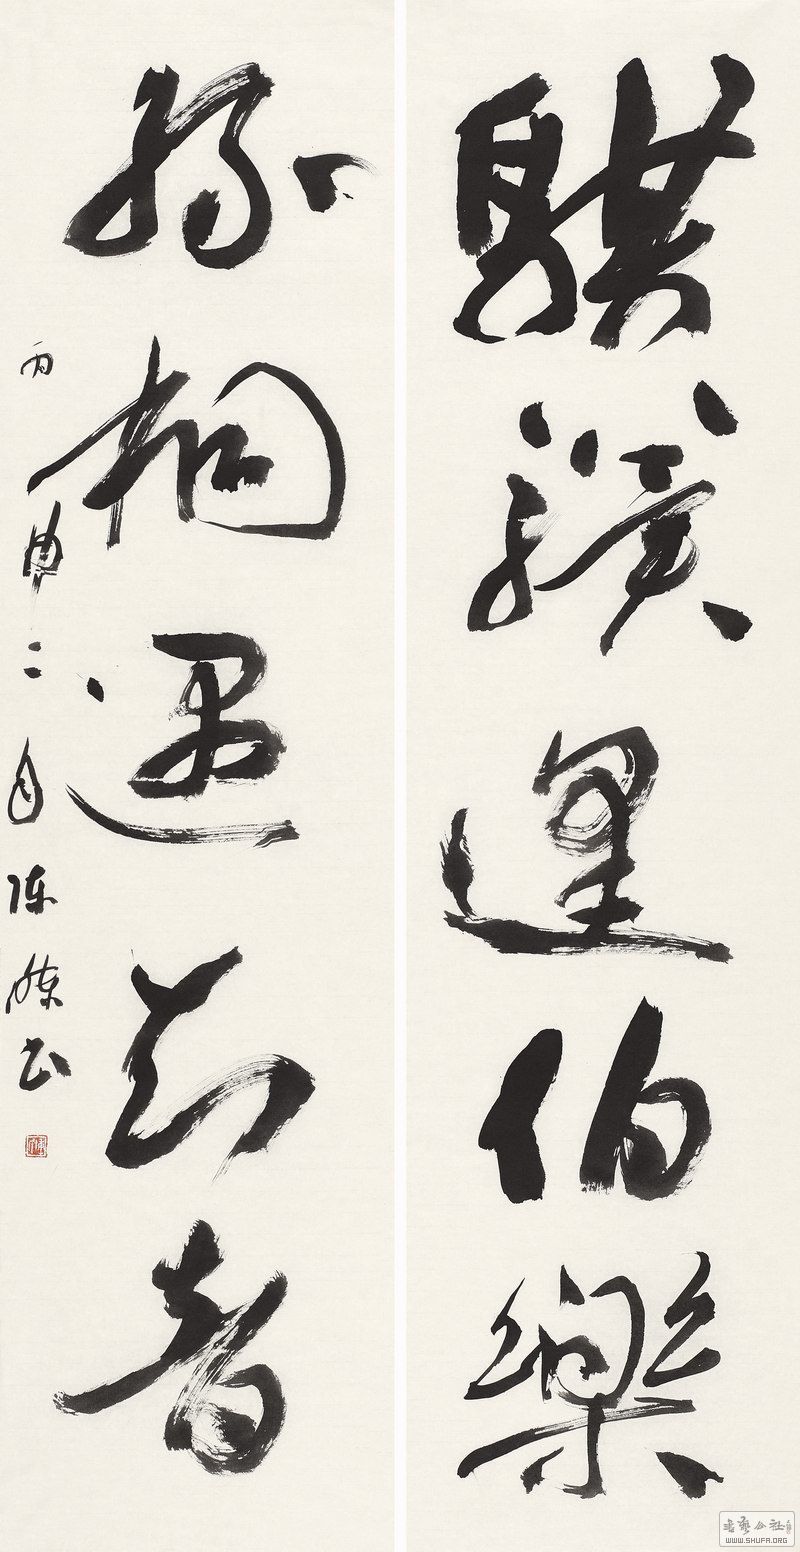 騏驥伯樂
孫桐遇知者
丙申二月陈书
书艺公社
WWW.SHUFA.ORG